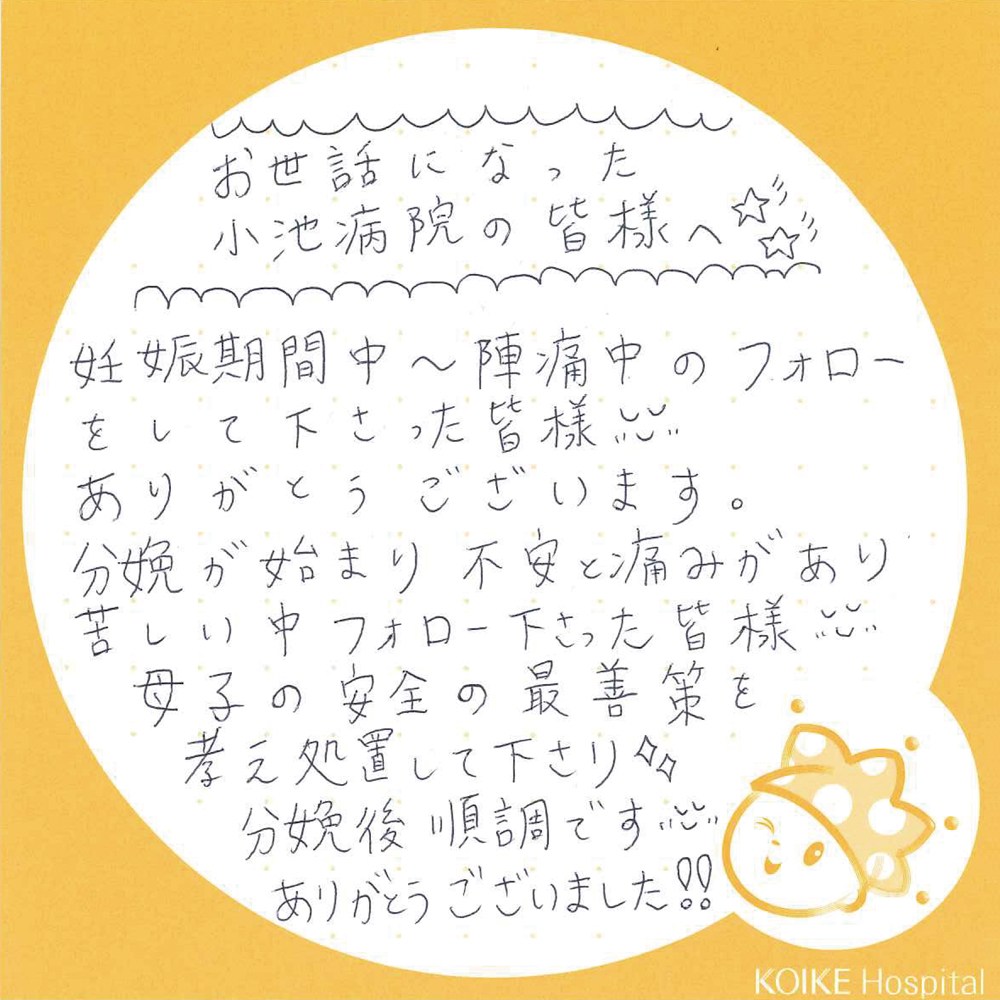 お世話になった
小池病院の皆様へ
妊娠期間中～陣痛中のフォロー
をして下さった皆様
ありがとうございます。
分娩が始まり不安と痛みがあり
苦しい中フォロー下さった皆様
母子の安全の最善策を
考え処置して下さり
分娩後順調です
ありがとうございました!!
KOIKE Hospital